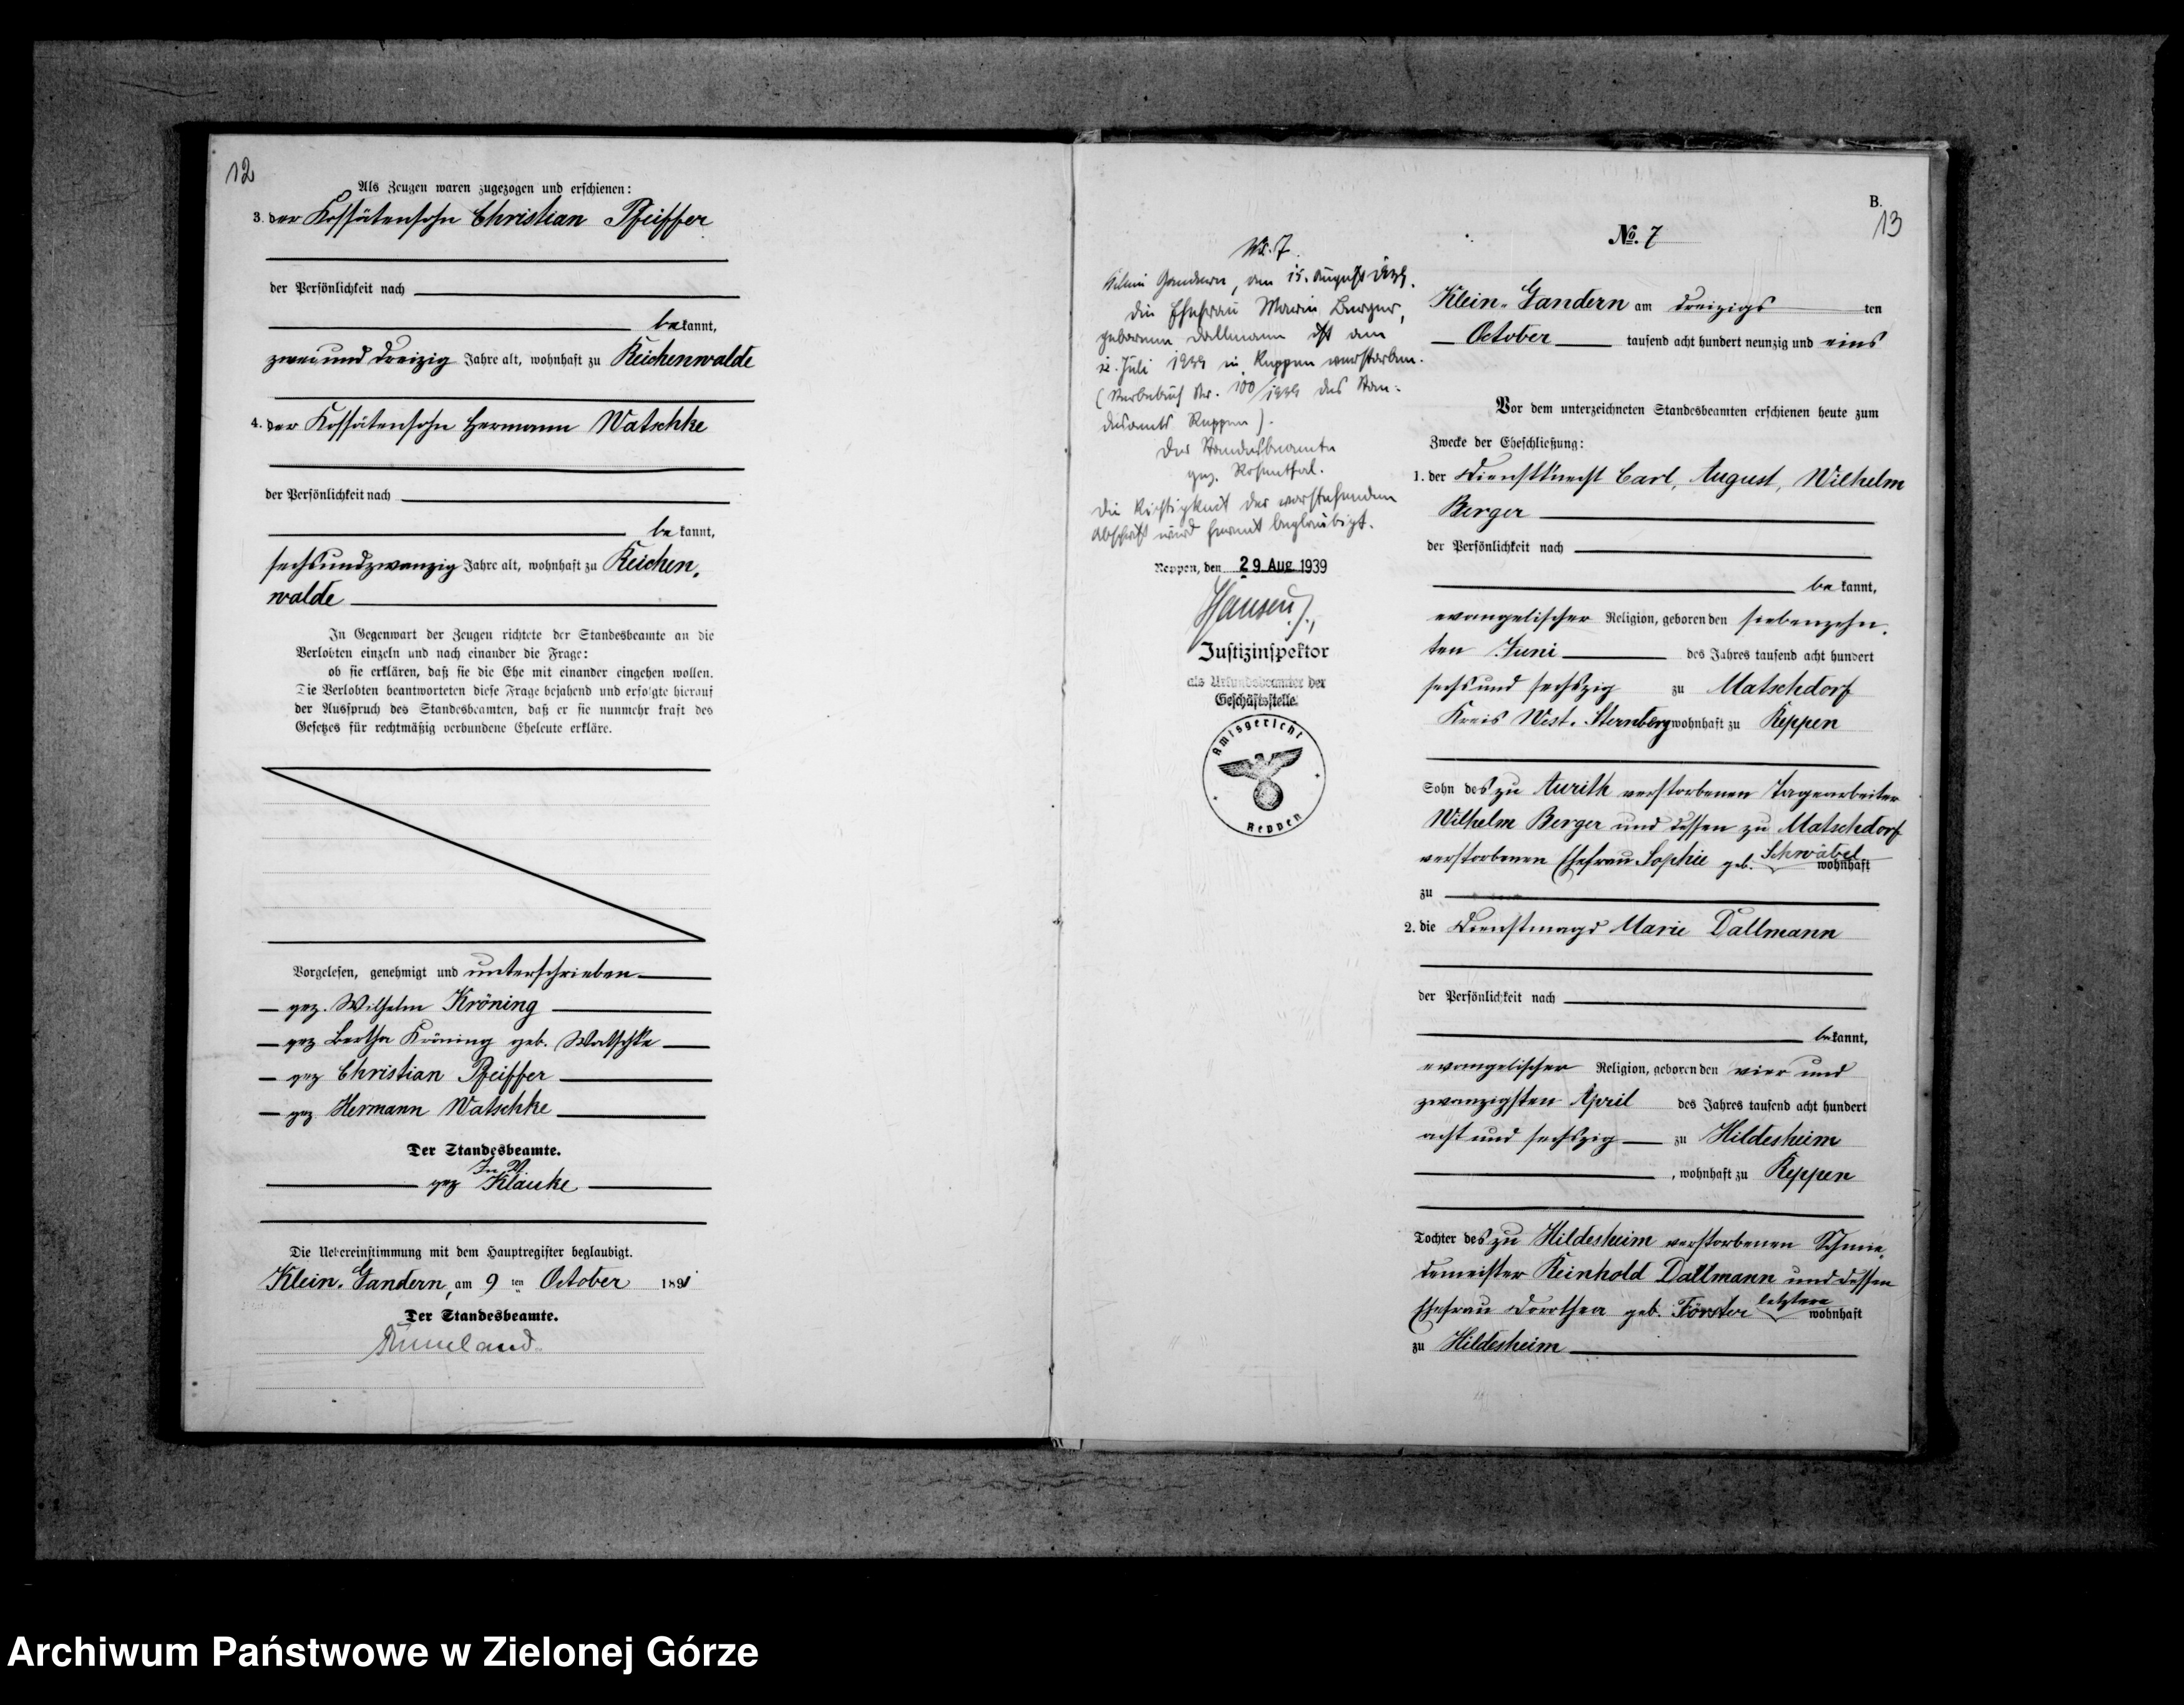 12
Als Zeugen waren zugezogen und erschienen:
3. der Kossätensohn Christian Pfeiffer
der Persönlichkeit nach
bekannt,
zweiund dreizig Jahre alt, wohnhaft zu Reichenwalde
4. der Kossätensohn Hermann Watschke
der Persönlichkeit nach
be kannt,
sechsundzwanzig Jahre alt, wohnhaft zu Reichen,
walde
In Gegenwart der Zeugen richtete der Standesbeamte an die
Verlobten einzeln und nach einander die Frage:
ob sie erklären, daß sie die Ehe mit einander eingehen wollen.
Die Verlobten beantworteten diese Frage bejahend und erfolgte hierauf
der Ausspruch des Standesbeamten, daß er sie nunmehr kraft des
Gesetzes für rechtmäßig verbundene Eheleute erkläre.
Vorgelesen, genehmigt und unterschrieben
gez. Wilhelm Kröning
gez Bertha Kröning geb. Watschke
gez Christian Pfeiffer
gez Hermann Watschke
Der Standesbeamte.
In V.
gez Klauke
Die Uebereinstimmung mit dem Hauptregister beglaubigt.
Klein-Gandern, am 9 ten October 1891
Der Standesbeamte.
Nr. 7.
Klein Gandern, am 15. August 1939.
Die Ehefrau Marie Berger,
geborene Dallmann ist am
Juli 1939 in Reppen verstorben.
(Sterbebuch Nr. 100/1939 des Stan-
desamts Reppen).
Der Standesbeamte
gez. Rosenthal.
Die Richtigkeit der vorstehenden
Abschrift wird hiermit beglaubigt.
Reppen, den 29. Aug. 1939
Justizinspektor
als Urkundsbeamter der
Geschäftsstelle.
Amtsgericht
Reppen
B.
13
No. 7
Klein-Gandern am dreizigs ten
October tausend acht hundert neunzig und eins
Vor dem unterzeichneten Standesbeamten erschienen heute zum
Zwecke der Eheschließung:
1. der Dienstknecht Carl, August, Wilhelm
Berger
der Persönlichkeit nach
be kannt,
evangelischer Religion, geboren den siebenzehn,
ten Juni des Jahres tausend acht hundert
sechs und sechszig zu Matschdorf
Kreis West-Sternberg wohnhaft zu Reppen
Sohn des zu Aurith verstorbenen Tagearbeiter
Wilhelm Berger und dessen zu Matschdorf
verstorbenen Ehefrau Sophie geb. Schwäbel wohnhaft
zu
2. die Dienstmagd Marie Dallmann
der Persönlichkeit nach
bekannt,
evangelischer Religion, geboren den vier und
zwanzigsten April des Jahres tausend acht hundert
acht und sechszig zu Hildesheim
, wohnhaft zu Reppen
Tochter des zu Hildesheim verstorbenen Schmie,
demeister Reinhold Dallmann und dessen
Ehefrau Dorothea geb. Förster letztere wohnhaft
zu Hildesheim
Archiwum Państwowe w Zielonej Górze